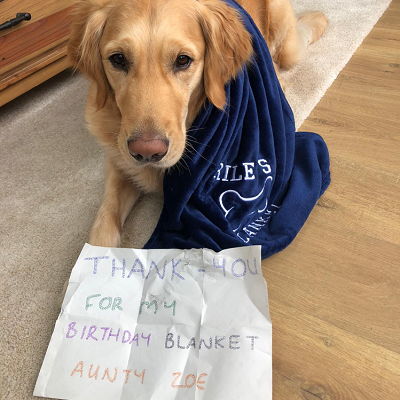 BLANKET
THANK-YOU
FOR MY
BIRTHDAY BLANKET
AUNTY ZOE